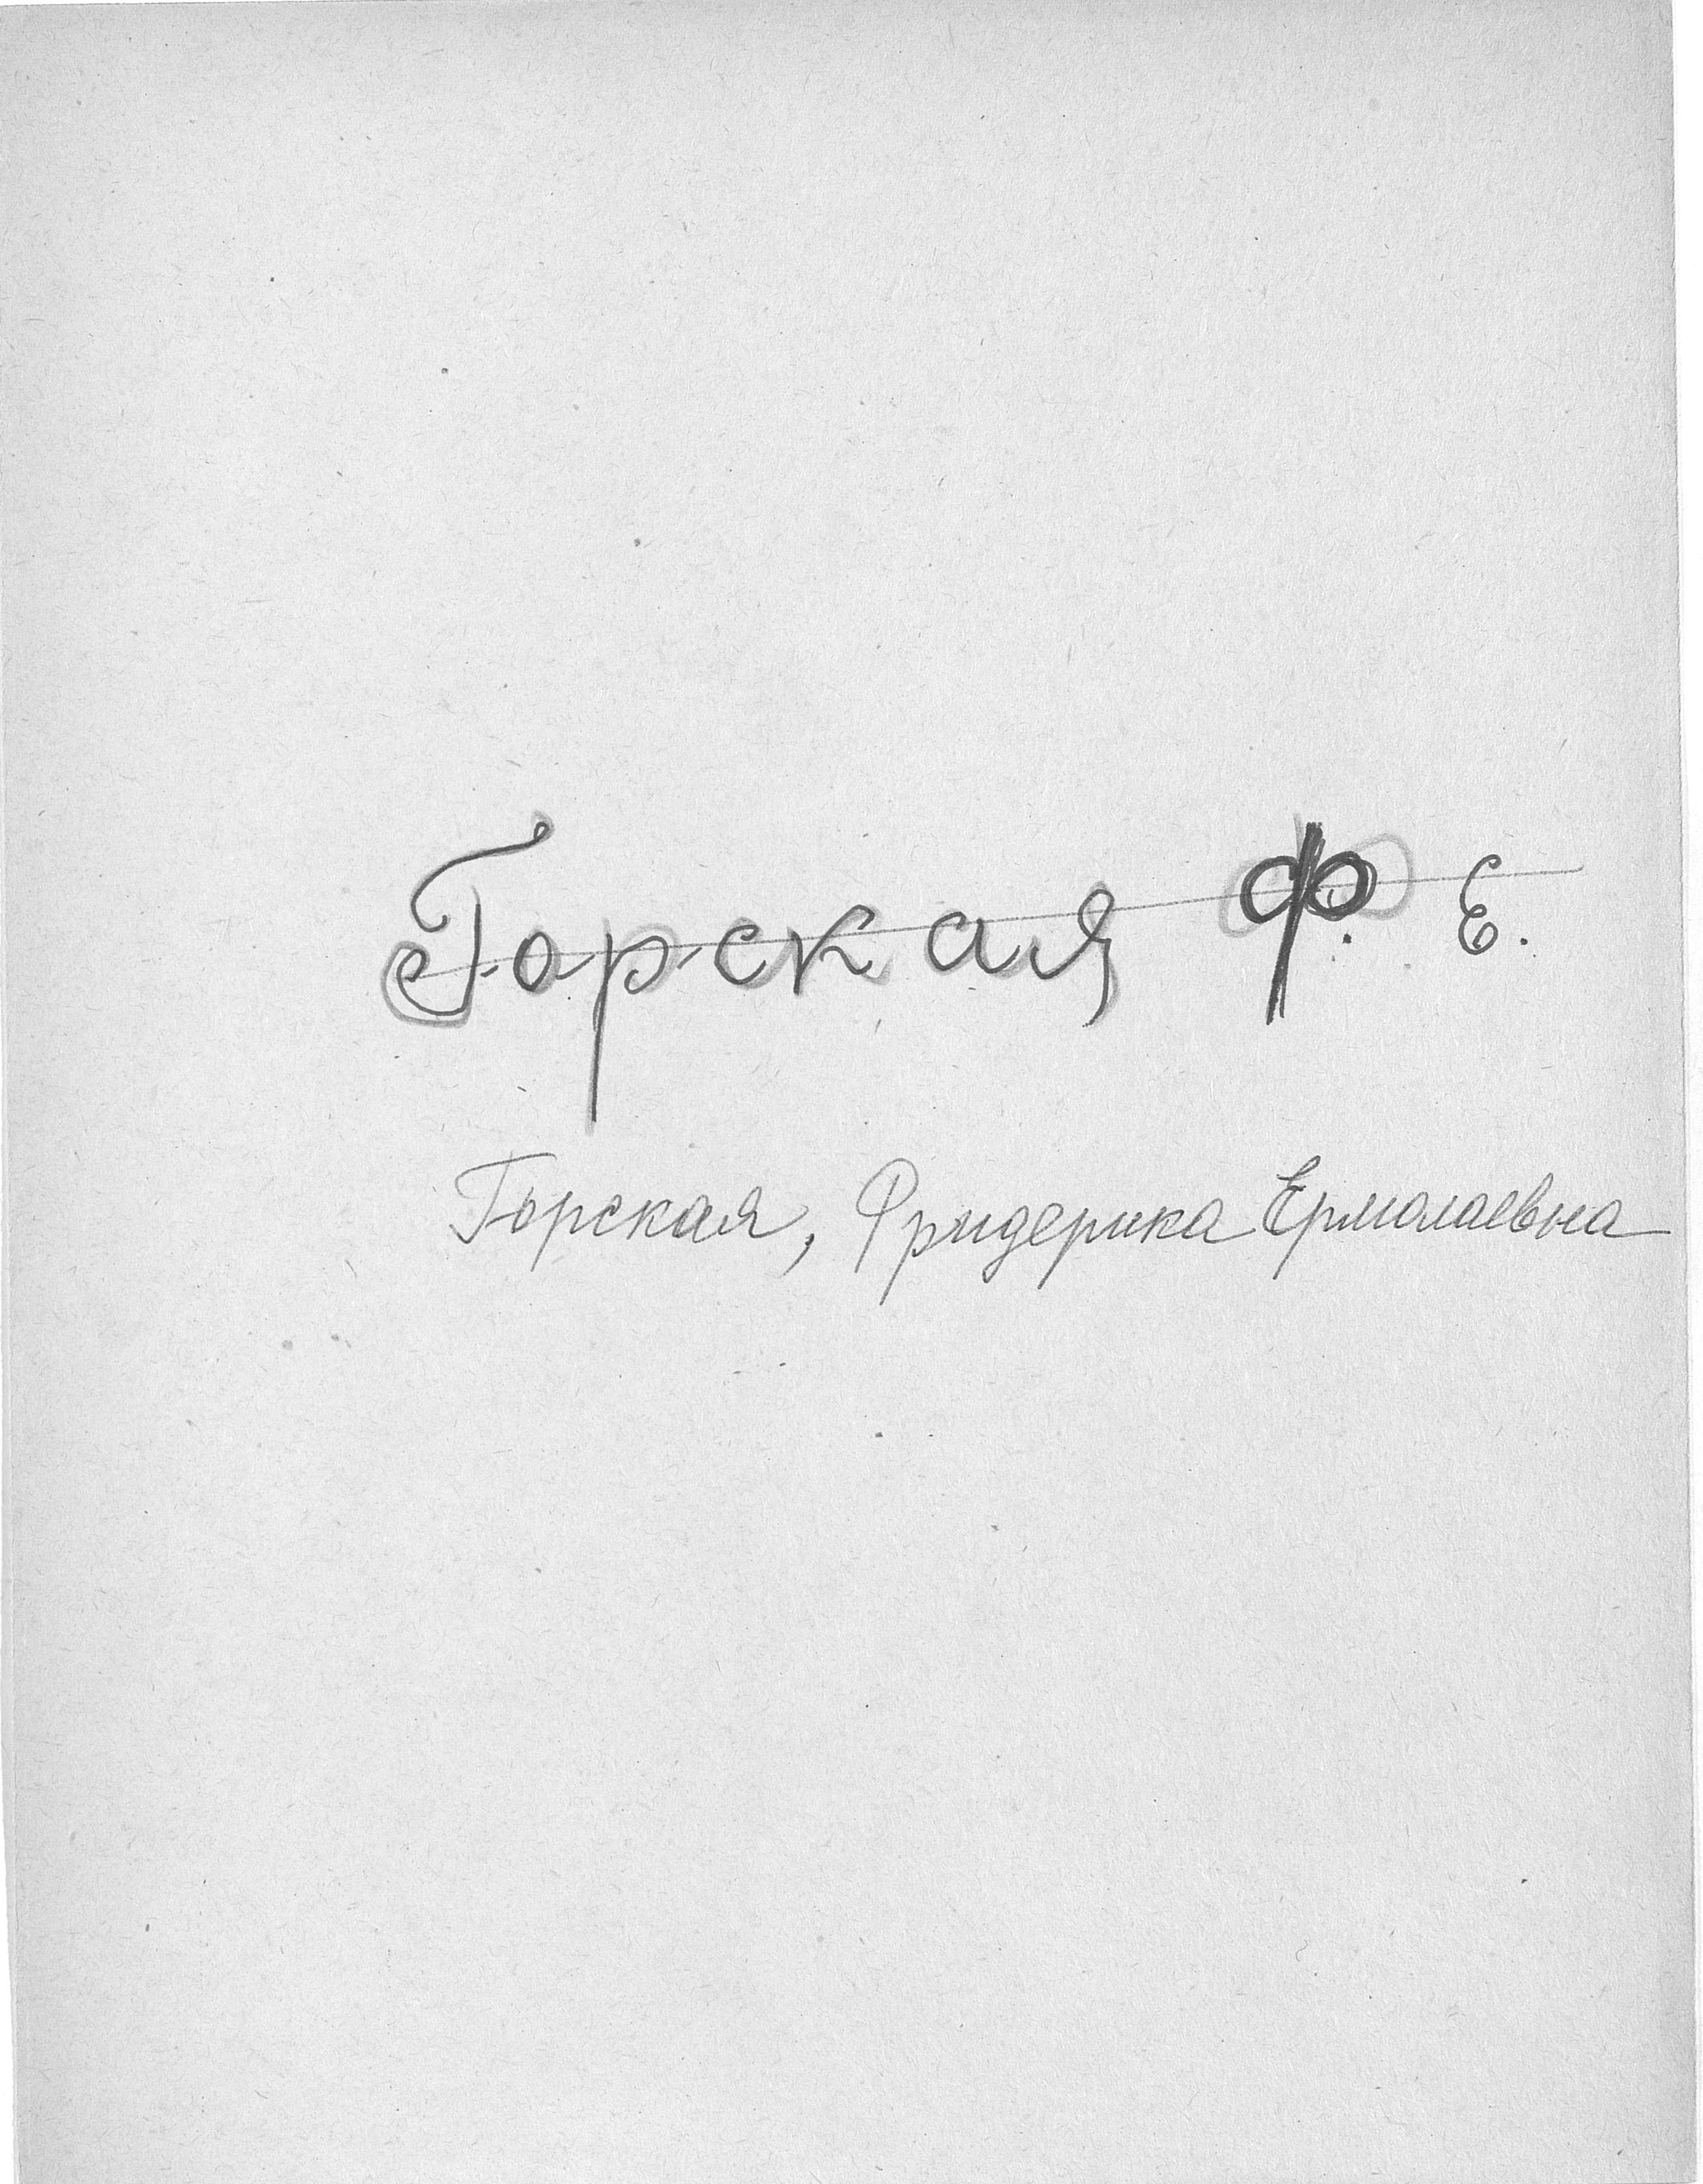 Горская Ф. Е.
Горская, Фридерика Ермолаевна